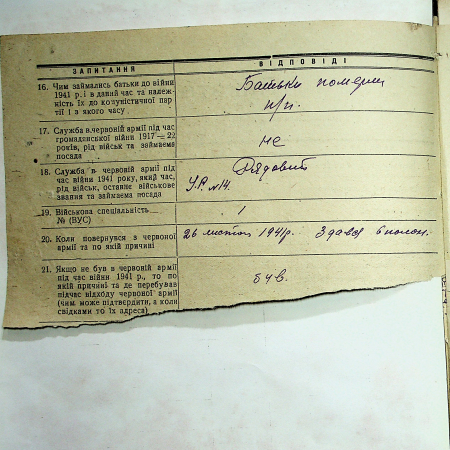 ЗАПИТАННЯ
ВІДПОВІДІ
16. Чим займались батьки до війни
1941 р. і в даний час та належ-
ність їх до комуністичної пар-
тії і з якого часу
Батьки померли
н/п.
17. Служба в червоній армії під час
громадянської війни 1917—22
років, рід військ та займаєма
посада
не
18. Служба в червоній армії під
час війни 1941 року, який час,
рід військ, останнє військове
звання та займаєма посада
Рядовий
19. Військова спеціальність
№ (ВУС)
20. Коли повернувся в червоної
армії та по якій причині
26 1941р. Здався в полон.
21. Якщо не був в червоній армії
під час війни 1941 р., то по
якій причині та де перебував
підчас відходу червоної армії
(чим може підтвердити, а коли
свідками то їх адреса)
був.